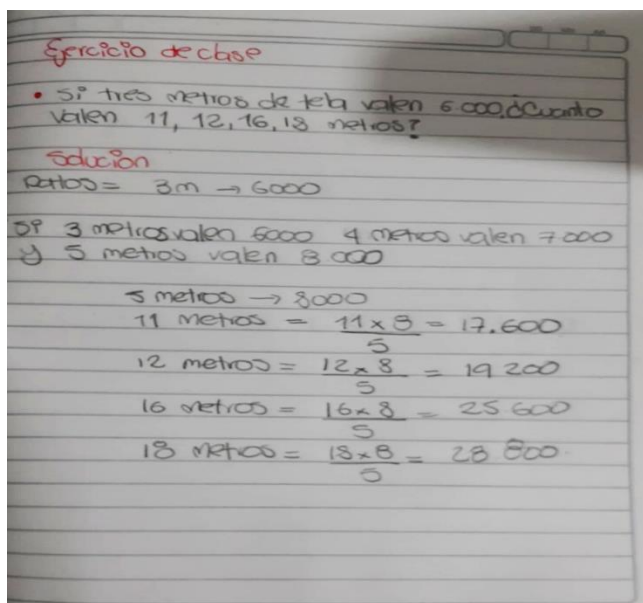 Ejercicio de clase
• Si tres metros de tela valen 6.000, ¿Cuanto
valen 11, 12, 16, 18 metros?
Solucion
Datos = 3m → 6000
Si 3 metros valen 6000 4 metros valen 7000
y 5 metros valen 8000
5 metros → 8000
11 metros = 11 x 8 / 5 = 17.600
12 metros = 12 x 8 / 5 = 19 200
16 metros = 16 x 8 / 5 = 25 600
18 metros = 18 x 8 / 5 = 28 800.